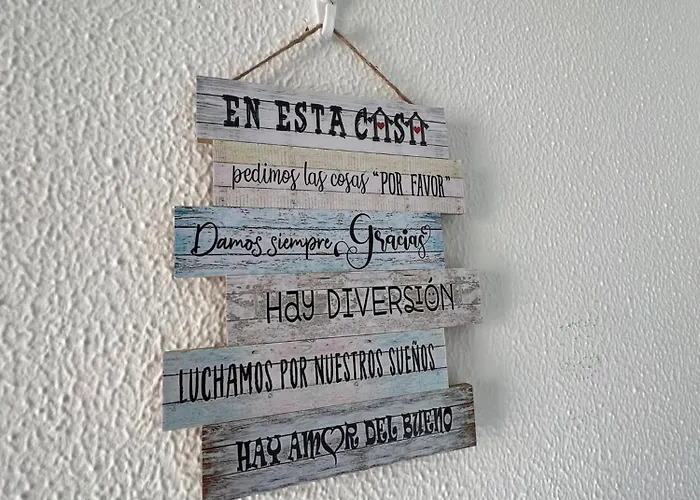 EN ESTA CASA
pedimos las cosas "POR FAVOR"
Damos siempre Gracias
HaY DIVERSIÓN
LUCHAMOS POR NUESTROS SUEÑOS
HAY AMOR DEL BUENO